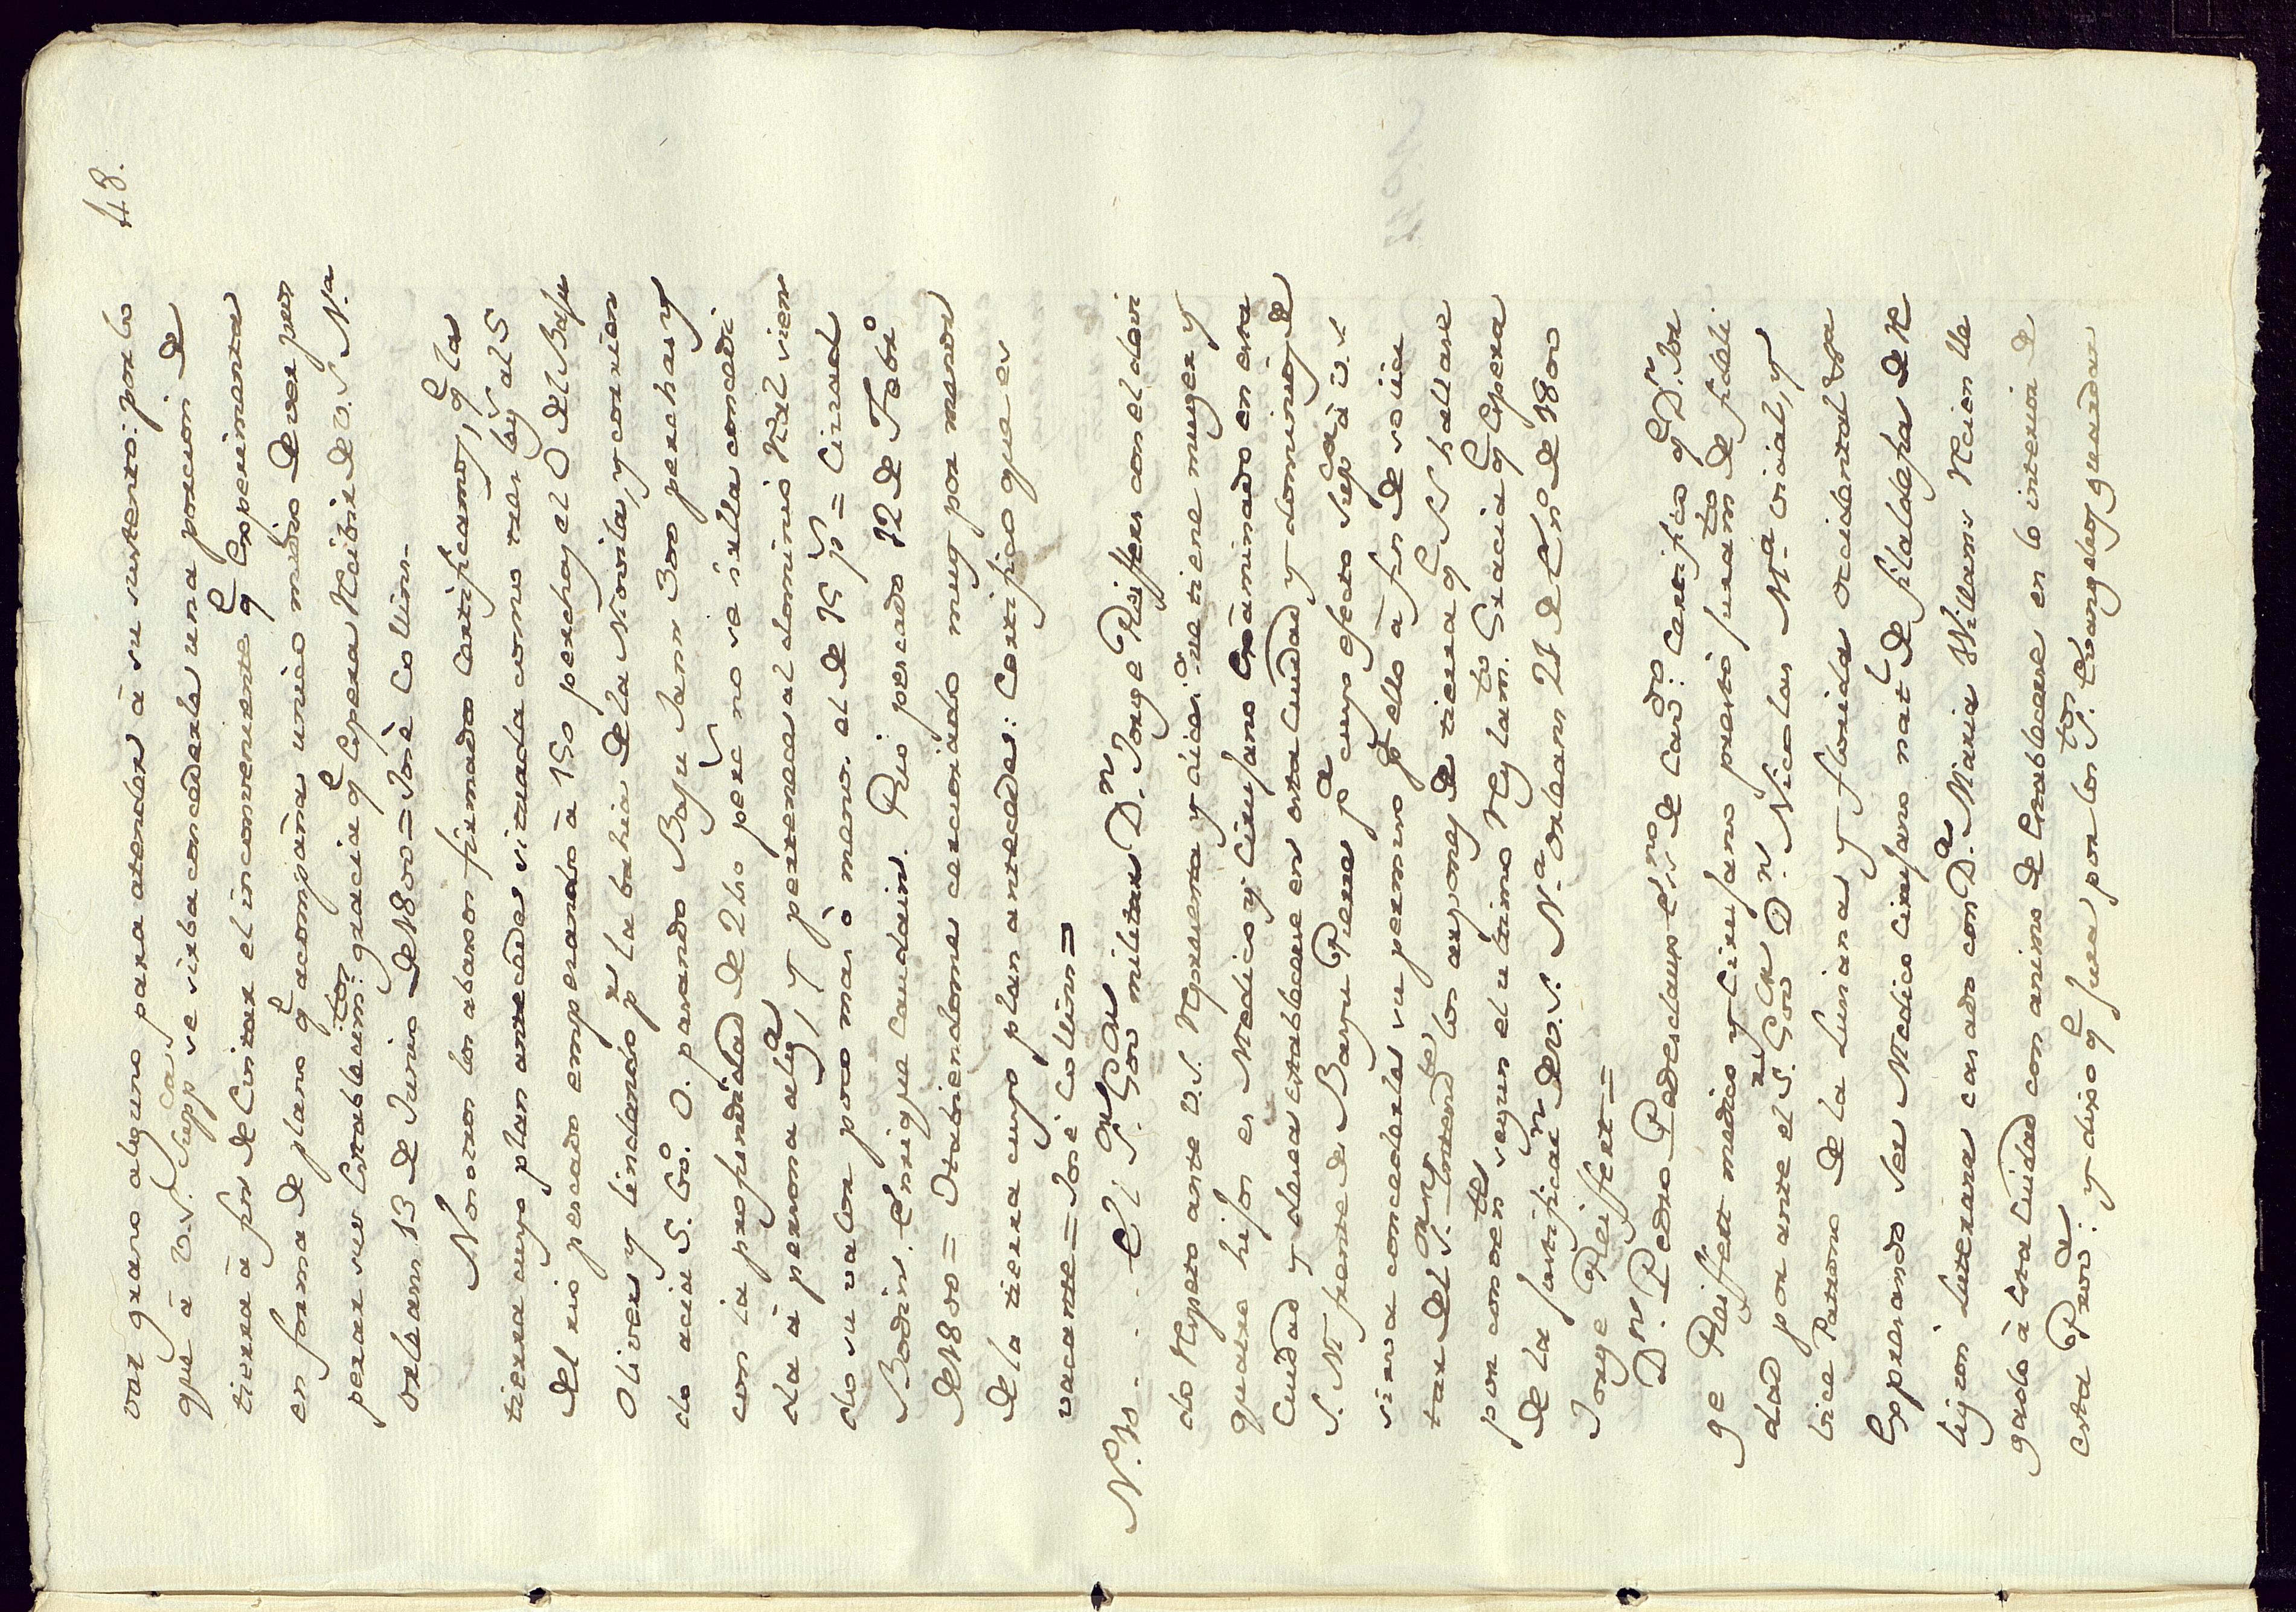 48.
var grano alguno para atender à su sustento: por lo
que à V.S. supp.ca se sirba concederle una porcion de
tierra à fin de Evitar el inconveniente q.e Experimenta
en forma de plano q.e acompaña unico medio de
perar sus Establecim.tos gracia q.e Espera Recibir de V.S. N.a
orleans 13 de Junio de 1800 = José Collins.
Nosotros los abaxos firmados Certificamos, q.e la
tierra cuyo plan antecede situada como tres leg.s al S
del rio pescado empesando à 150 perchas el O del Bayu
Olivers y lindando p.r la bahia de la Movila, y corrien
do acia S. 60.° O. pasando Bayu Jann 300 perchas y
con la profundidad de 240 perc.s no se à sido concedi
da à persona alg.a, y pertenece al dominio Real sien
do su valor poco mas ò menos el de 15 p.s = Cirued
Bodin. Enrique Baudain. Rio pescado 12 de Feb.o
de 1800 = Haviendome cerciorado muy por menor
de la tierra cuyo plan antecede: Certifico que es
vacante = José Collins =
N.° 11 - - El S.or Gov.or militar D.n Jorge Reiffer con el devi
do Respeto ante V.S. Representa y dice: que tiene muger y
quatro hijos es Medico y Cirujano Examinado en esta
Ciudad y desea establecerse en esta Ciudad y dominios de
S.M. frente de Bayu Pierre p.a cuyo efecto sup.ca à V.S.
sirva concederles su permiso p.a ello à fin de solici
tar del S.or Intend.te los arpones de tierra q.e SS hallare
por conven.te segun el ultimo Reglam.to Gracia q.e Espera
de la justificac.n de V.S. N.a orleans 21 de En.o de 1800
Jorge Reiffert =
D.n Pedro Pedesclaux Es.no de Cav.do: Certifico q.e D.n Jor
ge Reiffert medico y Cirujano prestò juram.to de fideli
dad por ante el S.r Gov.or D.n Nicolas M.a Vidal, y
vice Patrono de la Luisiana y florida occidental &.a
Expresando ser Medico Cirujano nat.l de filadefia de Re
ligion Luterana casado con D.a Maria Williams Recien lle
gado à Esta Ciudad con animo de Establecerse en lo interior de
esta Prov.a: y dixo q.e jura por los S.tos Evangelios guardar